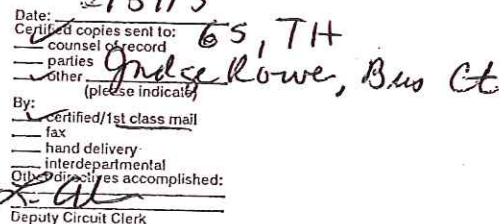 Date:
Certified copies sent to: GS, TH
✓ counsel of record
___ parties
✓ other Judge Rowe, Bus Ct
(please indicate)
By:
✓ certified/1st class mail
___ fax
___ hand delivery
___ interdepartmental
Other directives accomplished:
Deputy Circuit Clerk